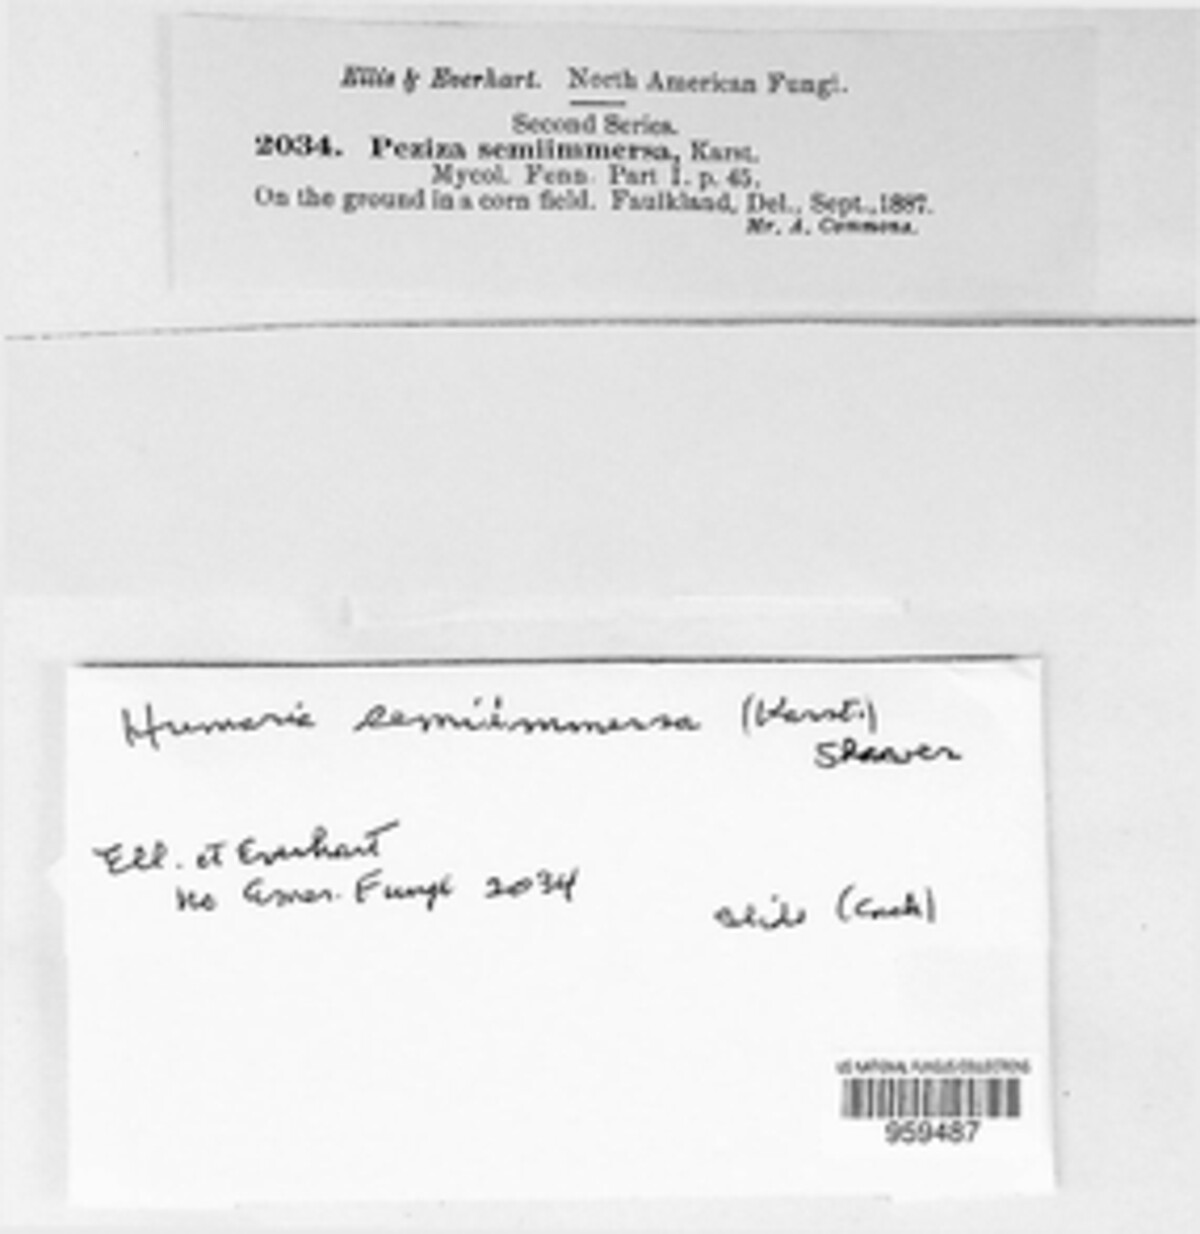 Ellis & Everhart. North American Fungi.
Second Series.
2034. Peziza semiimmersa, Karst.
Mycol. Fenn. Part I. p. 45.
On the ground in a corn field. Faulkland, Del., Sept., 1887.
Mr. A. Commons.
Humaria semiimmersa (Karst.)
Seaver
Ell. et Everhart
No Amer. Fungi 2034
slide
US NATIONAL FUNGUS COLLECTIONS
959487